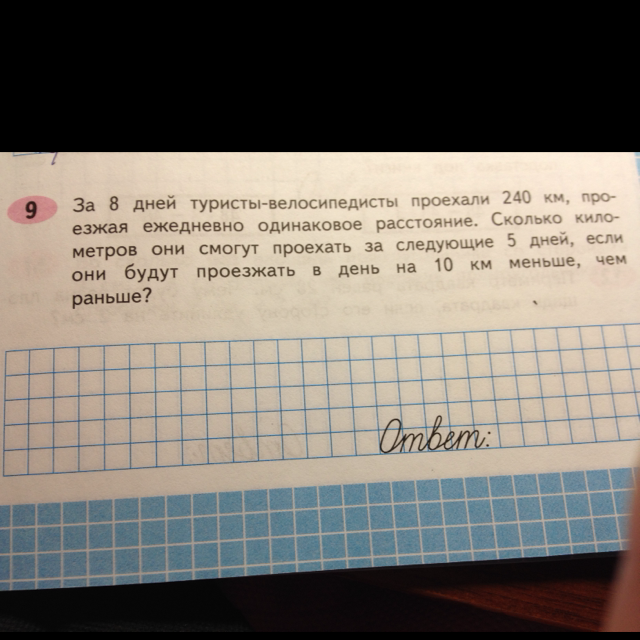 9 За 8 дней туристы-велосипедисты проехали 240 км, про-
езжая ежедневно одинаковое расстояние. Сколько кило-
метров они смогут проехать за следующие 5 дней, если
они будут проезжать в день на 10 км меньше, чем
раньше?
Ответ: